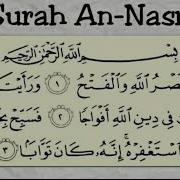 Surah An-Nasr
بِسْمِ اللَّهِ الرَّحْمَٰنِ الرَّحِيمِ
صْرُ اللَّهِ وَالْفَتْحُ ١ وَرَأَيْتَ
فِي دِينِ اللَّهِ أَفْوَاجًا ٢ فَسَبِّحْ
اسْتَغْفِرْهُ إِنَّهُ كَانَ تَوَّابًا ٣